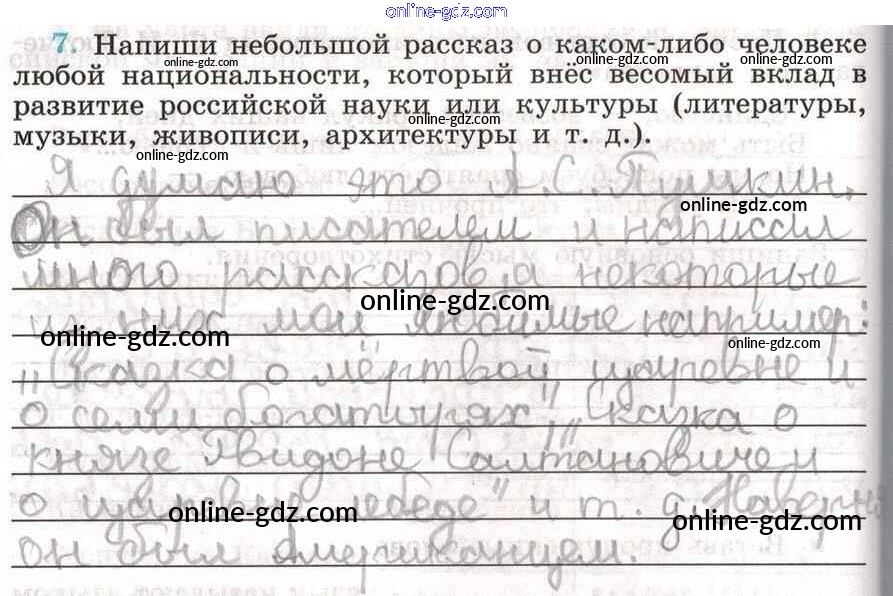 online-gdz.com
7. Напиши небольшой рассказ о каком-либо человеке
online-gdz.com online-gdz.com
любой национальности, который внёс весомый вклад в
развитие российской науки или культуры (литературы,
online-gdz.com
музыки, живописи, архитектуры и т. д.).
online-gdz.com
Я думаю это А.С.Пушкин.
online-gdz.com
Он был писателем и написал
много рассказов а некоторые
online-gdz.com
из них мои любимые например:
online-gdz.com
online-gdz.com
„Сказка о мёртвой царевне и
о семи богатырях", „Сказка о
князе Гвидоне Салтановиче и
о царевне лебеде" и т. д.
online-gdz.com
online-gdz.com
он был Американцем.